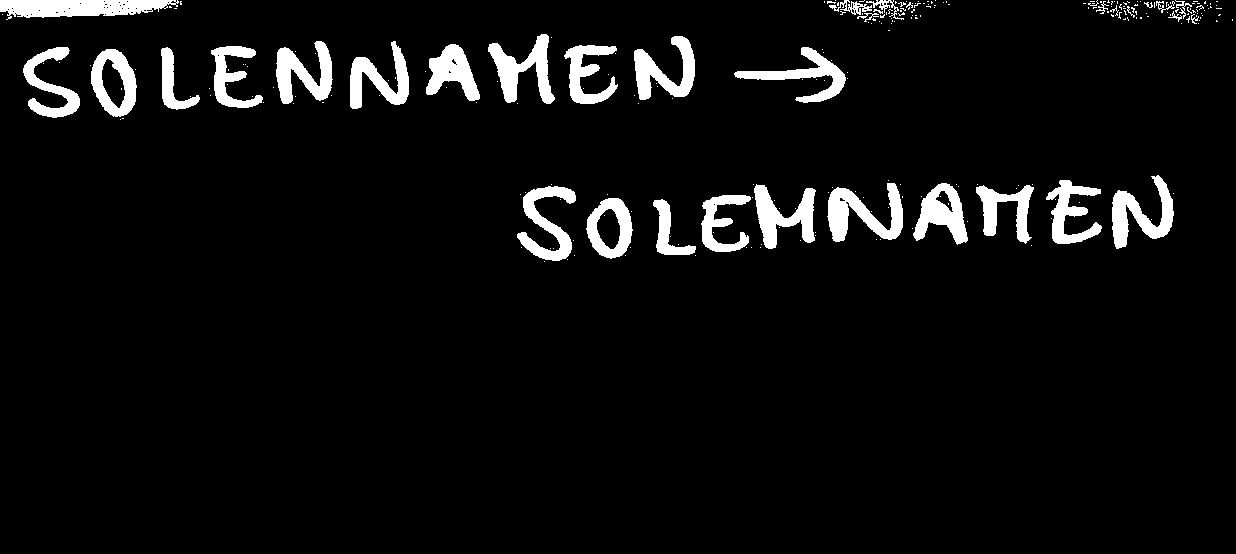 SOLENNAMEN →
SOLEMNAMEN